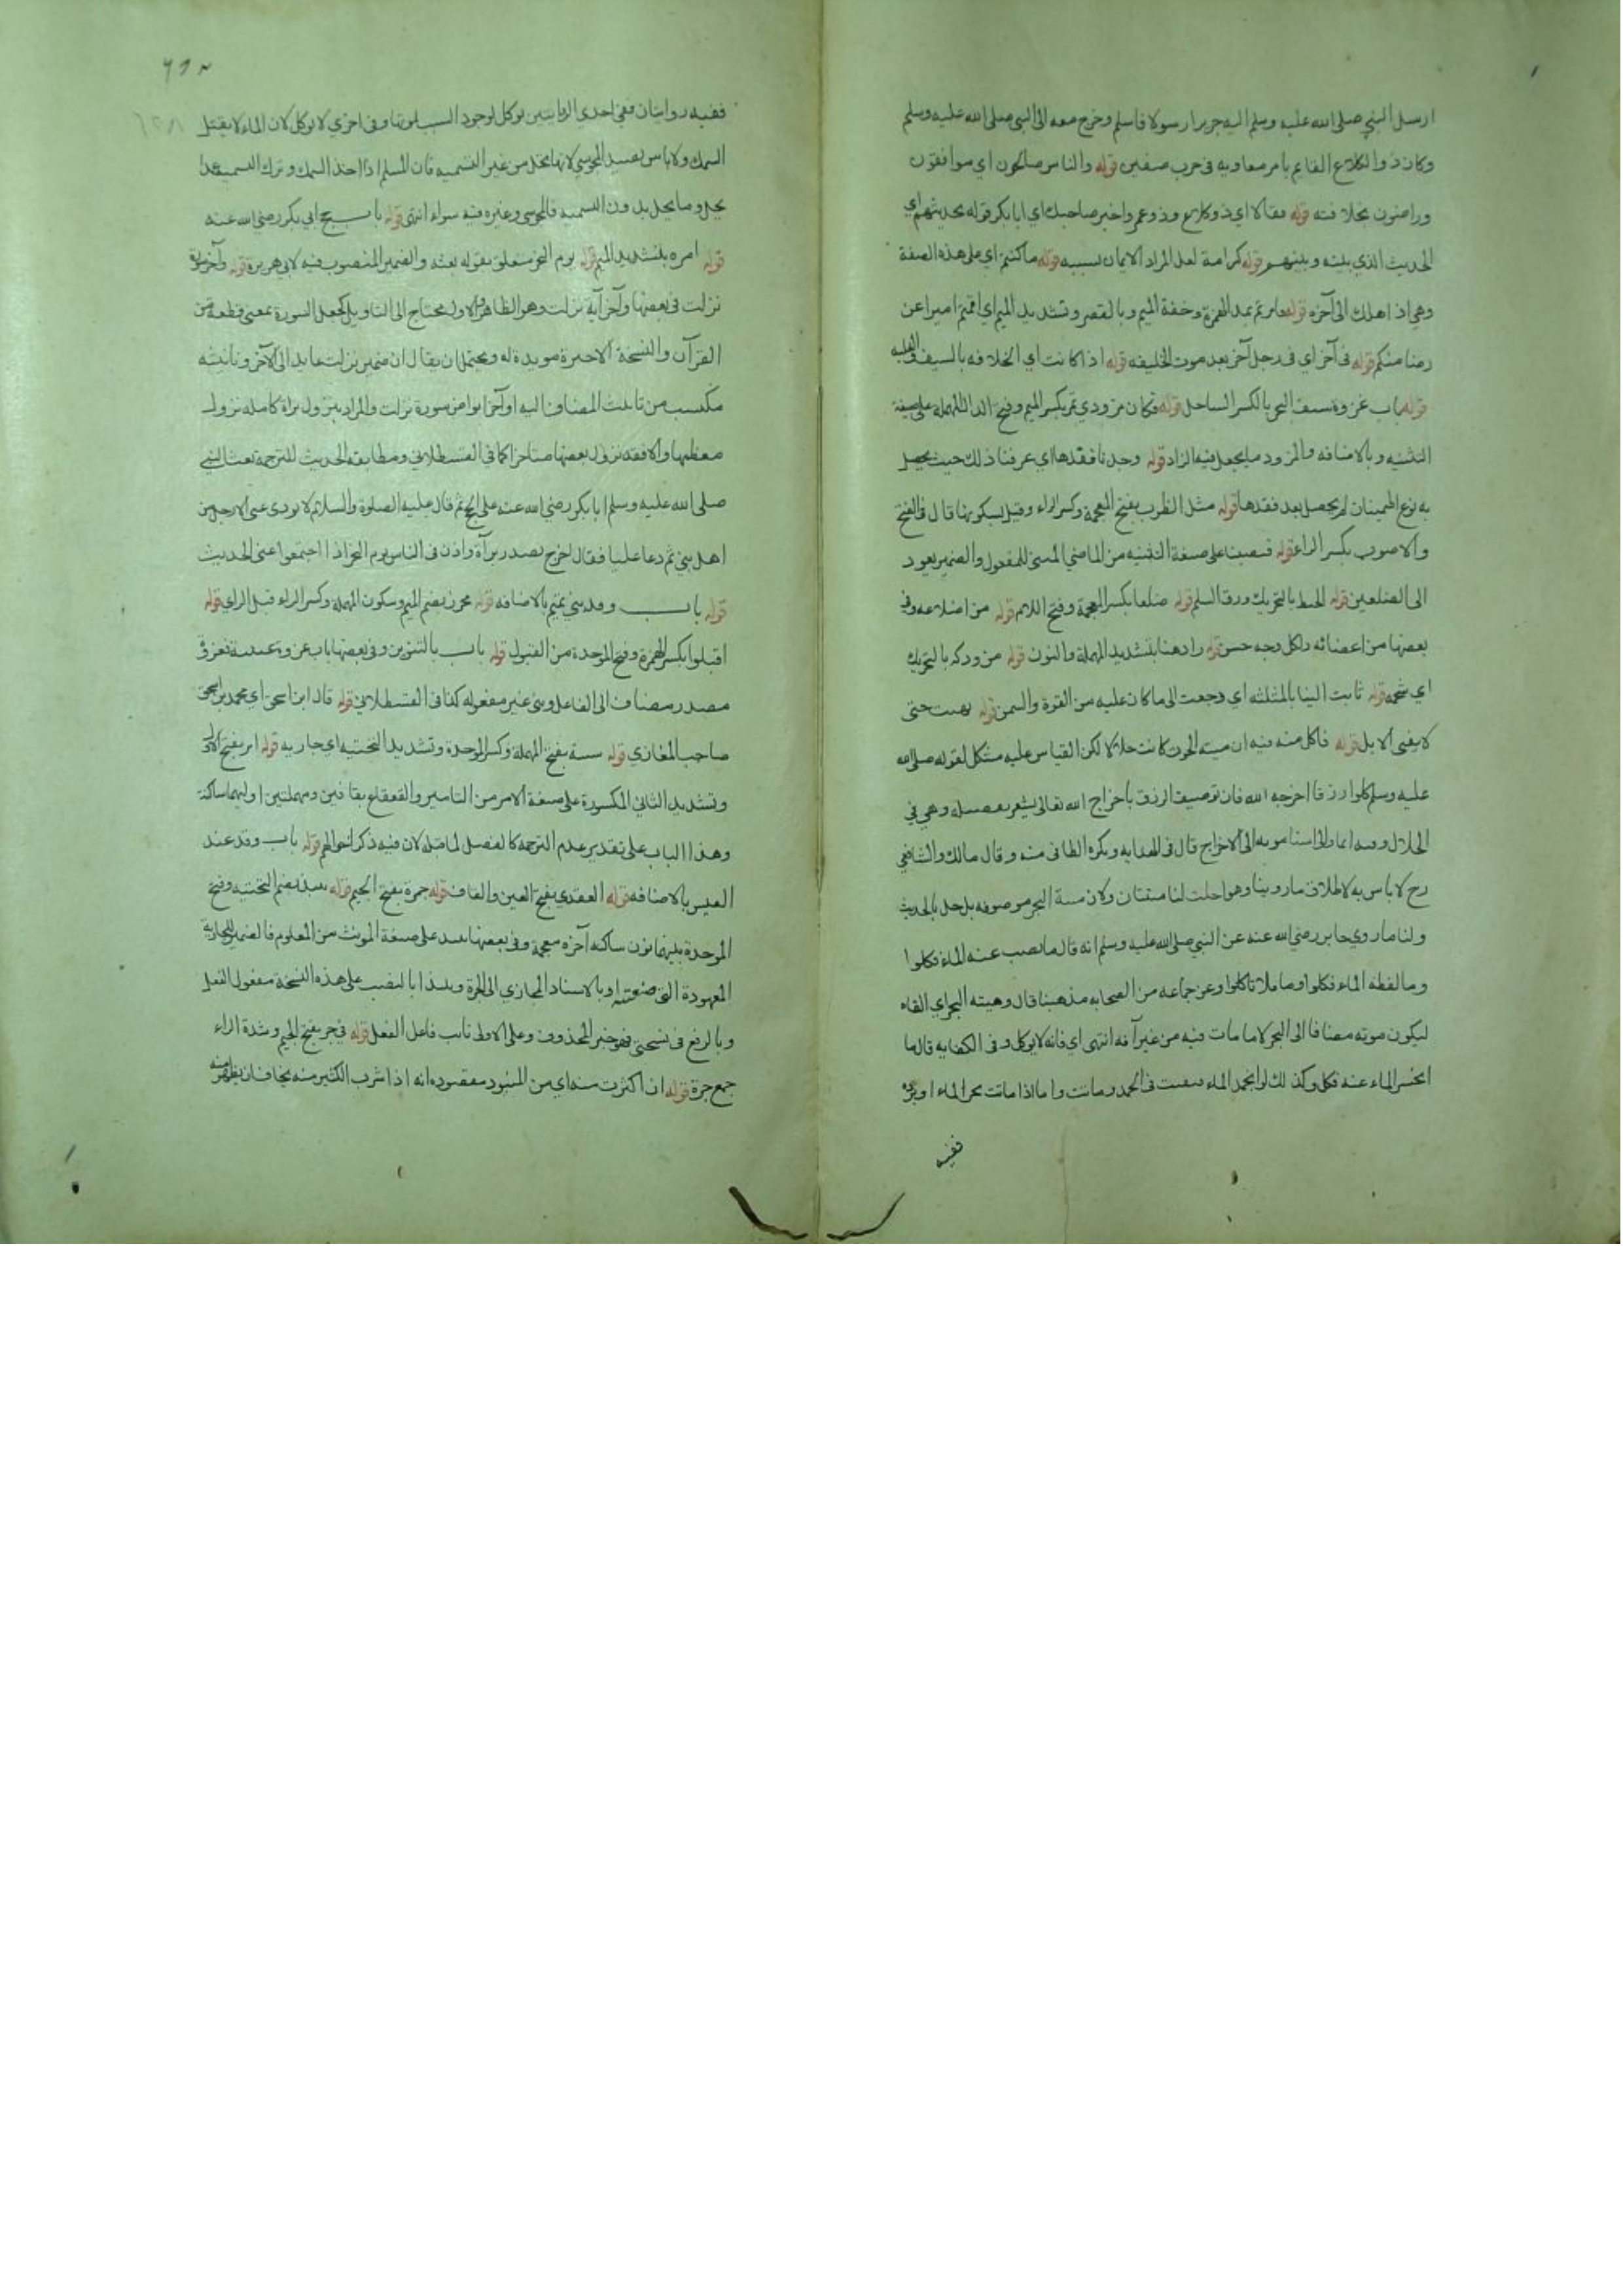 ارسل النبي صلى الله عليه وسلم اليه جريرا رسولا فاسلم وخرج معه الى النبي صلى الله عليه وسلم
وكان ذو الكلاع القايم بامر معاويه في حرب صفين قوله والناس صالحون اي موافقون
وراضون بخلافته قوله فقالا اي ذو كلاع وذو عمرو اخبر صاحبك اي ابا بكر قوله بحديثهم اي
الحديث الذي بينه وبينهم قوله كرامة لعل المراد الايمان بسببه قوله ما كنتم اي على هذه الصفة
وهي اذا هلك الى آخره قوله تامرتم بمد الهمزة وخفة الميم وبالقصر وتشديد الميم اي اقمتم اميرا عن
رضا منكم قوله في آخر اي في رجل آخر بعد موت الخليفه قوله اذا كانت اي الخلافه بالسيف والغلبه
قوله باب غزوة سيف البحر بالكسر الساحل قوله فكان مزودي تمر بكسر الميم وفتح الدال المهملة على صيغة
التثنيه وبالاضافه والمزود ما يجعل فيه الزاد قوله وجدنا فقدها اي عرفنا ذلك حيث يحصل
به نوع اطمينان لم يحصل بعد فقدها قوله مثل الظرب بفتح المعجمة وكسر الراء وقيل بسكونها قال في الفتح
والاصوب بكسر الراء قوله فنصبنا على صيغة التثنيه من الماضي المبني للمفعول والضمير يعود
الى الضلعين قوله الخبط بالتحريك ورق السلم قوله ضلعا بكسر المعجمة وفتح اللام قوله من اضلاعه وفي
بعضها من اعضائه ولكل وجه حسن قوله وادهنا بتشديد المهملة والنون قوله من ودكه بالتحريك
اي شحمه قوله ثابت الينا بالمثلثه اي رجعت الى ما كان عليه من القوة والسمن قوله حتى
لا يفنى الابل قوله فاكل منه فيه ان ميتة الحوت كانت حلالا لكن القياس عليه مشكل لقوله صلى الله
عليه وسلم كلوا رزقا اخرجه الله فان توصيف الرزق باخراج الله تعالى يشعر وهي في
الحلال الى الاخراج قال في الهدايه ويكره الطافي منه وقال مالك والشافعي
رح لا باس به لاطلاق ما روينا وهو احلت لنا ميتتان ولان ميتة البحر موصوفه بالحل بالحديث
ولنا ما روي جابر رضي الله عنه عن النبي صلى الله عليه وسلم انه قال ما نضب عنه الماء فكلوا
وما لفظه الماء فكلوا وما طفا فلا تاكلوا وعن جماعه من الصحابه مذهبنا قال وميته البحر اي القاه
ليكون موته مضافا الى البحر لا ما مات فيه من غير آفه انتهى اي فانه لا يوكل وفي الكفايه قال ما
انحسر الماء عنه فكل وكذلك لو انجمد الماء فبقيت في الجمد وماتت واما اذا ماتت بحر الماء او برده
ففيه
ففيه روايتان ففي احدى الروايتين يوكل لوجود السبب لموتها وفي اخرى لا يوكل لان الماء لا يقتل
السمك ولا باس بصيد المجوسي لانها تحل من غير التسميه فان المسلم اذا اخذ السمك وترك التسميه عمدا
يحل وما يحل بدون التسميه فالمجوسي وغيره فيه سواء انتهى قوله باب حج ابي بكر رضي الله عنه
قوله امره بتشديد الميم قوله يوم النحر متعلق بقوله بعثه والضمير المنصوب فيه لابي هريرة قوله وآخر سورة
نزلت في بعضها وآخر آية نزلت وهو الظاهر والاول محتاج الى التاويل كجعل السورة بمعنى قطعة من
القرآن والنسخة الاخيرة مويدة له ويحتمل ان يقال ان ضمير نزلت عايد الى الآخر وتانيثه
مكتسب من تانيث المضاف اليه او آخرا بواحد سورة نزلت والمراد بنزول براة كاملة نزول
معظمها والا فقد نزول بعضها متاخرا كما في القسطلاني ومطابقة الحديث للترجمة بعث النبي
صلى الله عليه وسلم ابا بكر رضي الله عنه على الحج ثم قال عليه الصلوة والسلام لا يودى عني الا رجل من
اهل بيتي ثم دعا عليا فقال اخرج بصدر براة واذن في الناس يوم النحر اذا اجتمعوا عنى الحديث
قوله باب وفد بني تميم بالاضافه قوله محرز بضم الميم وسكون المهملة وكسر الراء قبل الزاي قوله
اقبلوا بكسر الهمزة وفتح الموحدة من القبول قوله باب بالتنوين وفي بعضها باب غزوة عيينة
مصدر مضاف الى الفاعل وبني عنبر مفعوله كذا في القسطلاني قوله قال ابن اسحق اي محمد بن اسحق
صاحب المغازي قوله سبية بفتح المهملة وكسر الموحدة وتشديد التحتيه اي جاريه قوله امر بفتح الاول
وتشديد الثاني المكسورة على صيغة الامر من التامير والقعقاع بقافين ومهملتين اوليهما ساكنة
وهذا الباب على تقدير عدم الترجمة كالفصل لما قبله لان فيه ذكر احوالهم قوله باب وفد عبد
القيس بالاضافه قوله العقدي بفتح العين والقاف قوله جرة بفتح الجيم قوله ينبذ بضم التحتيه وفتح
الموحدة بينهما نون ساكنه آخره معجمة وفي بعضها على صيغة المونث من المعلوم فالضمير للجارية
المعهودة التي صنعته او بالاسناد المجازي الى الجرة ونبيذا بالنصب على هذه النسخة مفعول الفعل
وبالرفع في نسختي فهو خبر المحذوف وعلى الاولى نائب فاعل الفعل قوله في جر بفتح الجيم وشدة الراء
جمع جرة قوله ان اكثرت منه اي من المنبوذ مقصوده انه اذا شرب الكثير منه يخاف ان يظهر منه